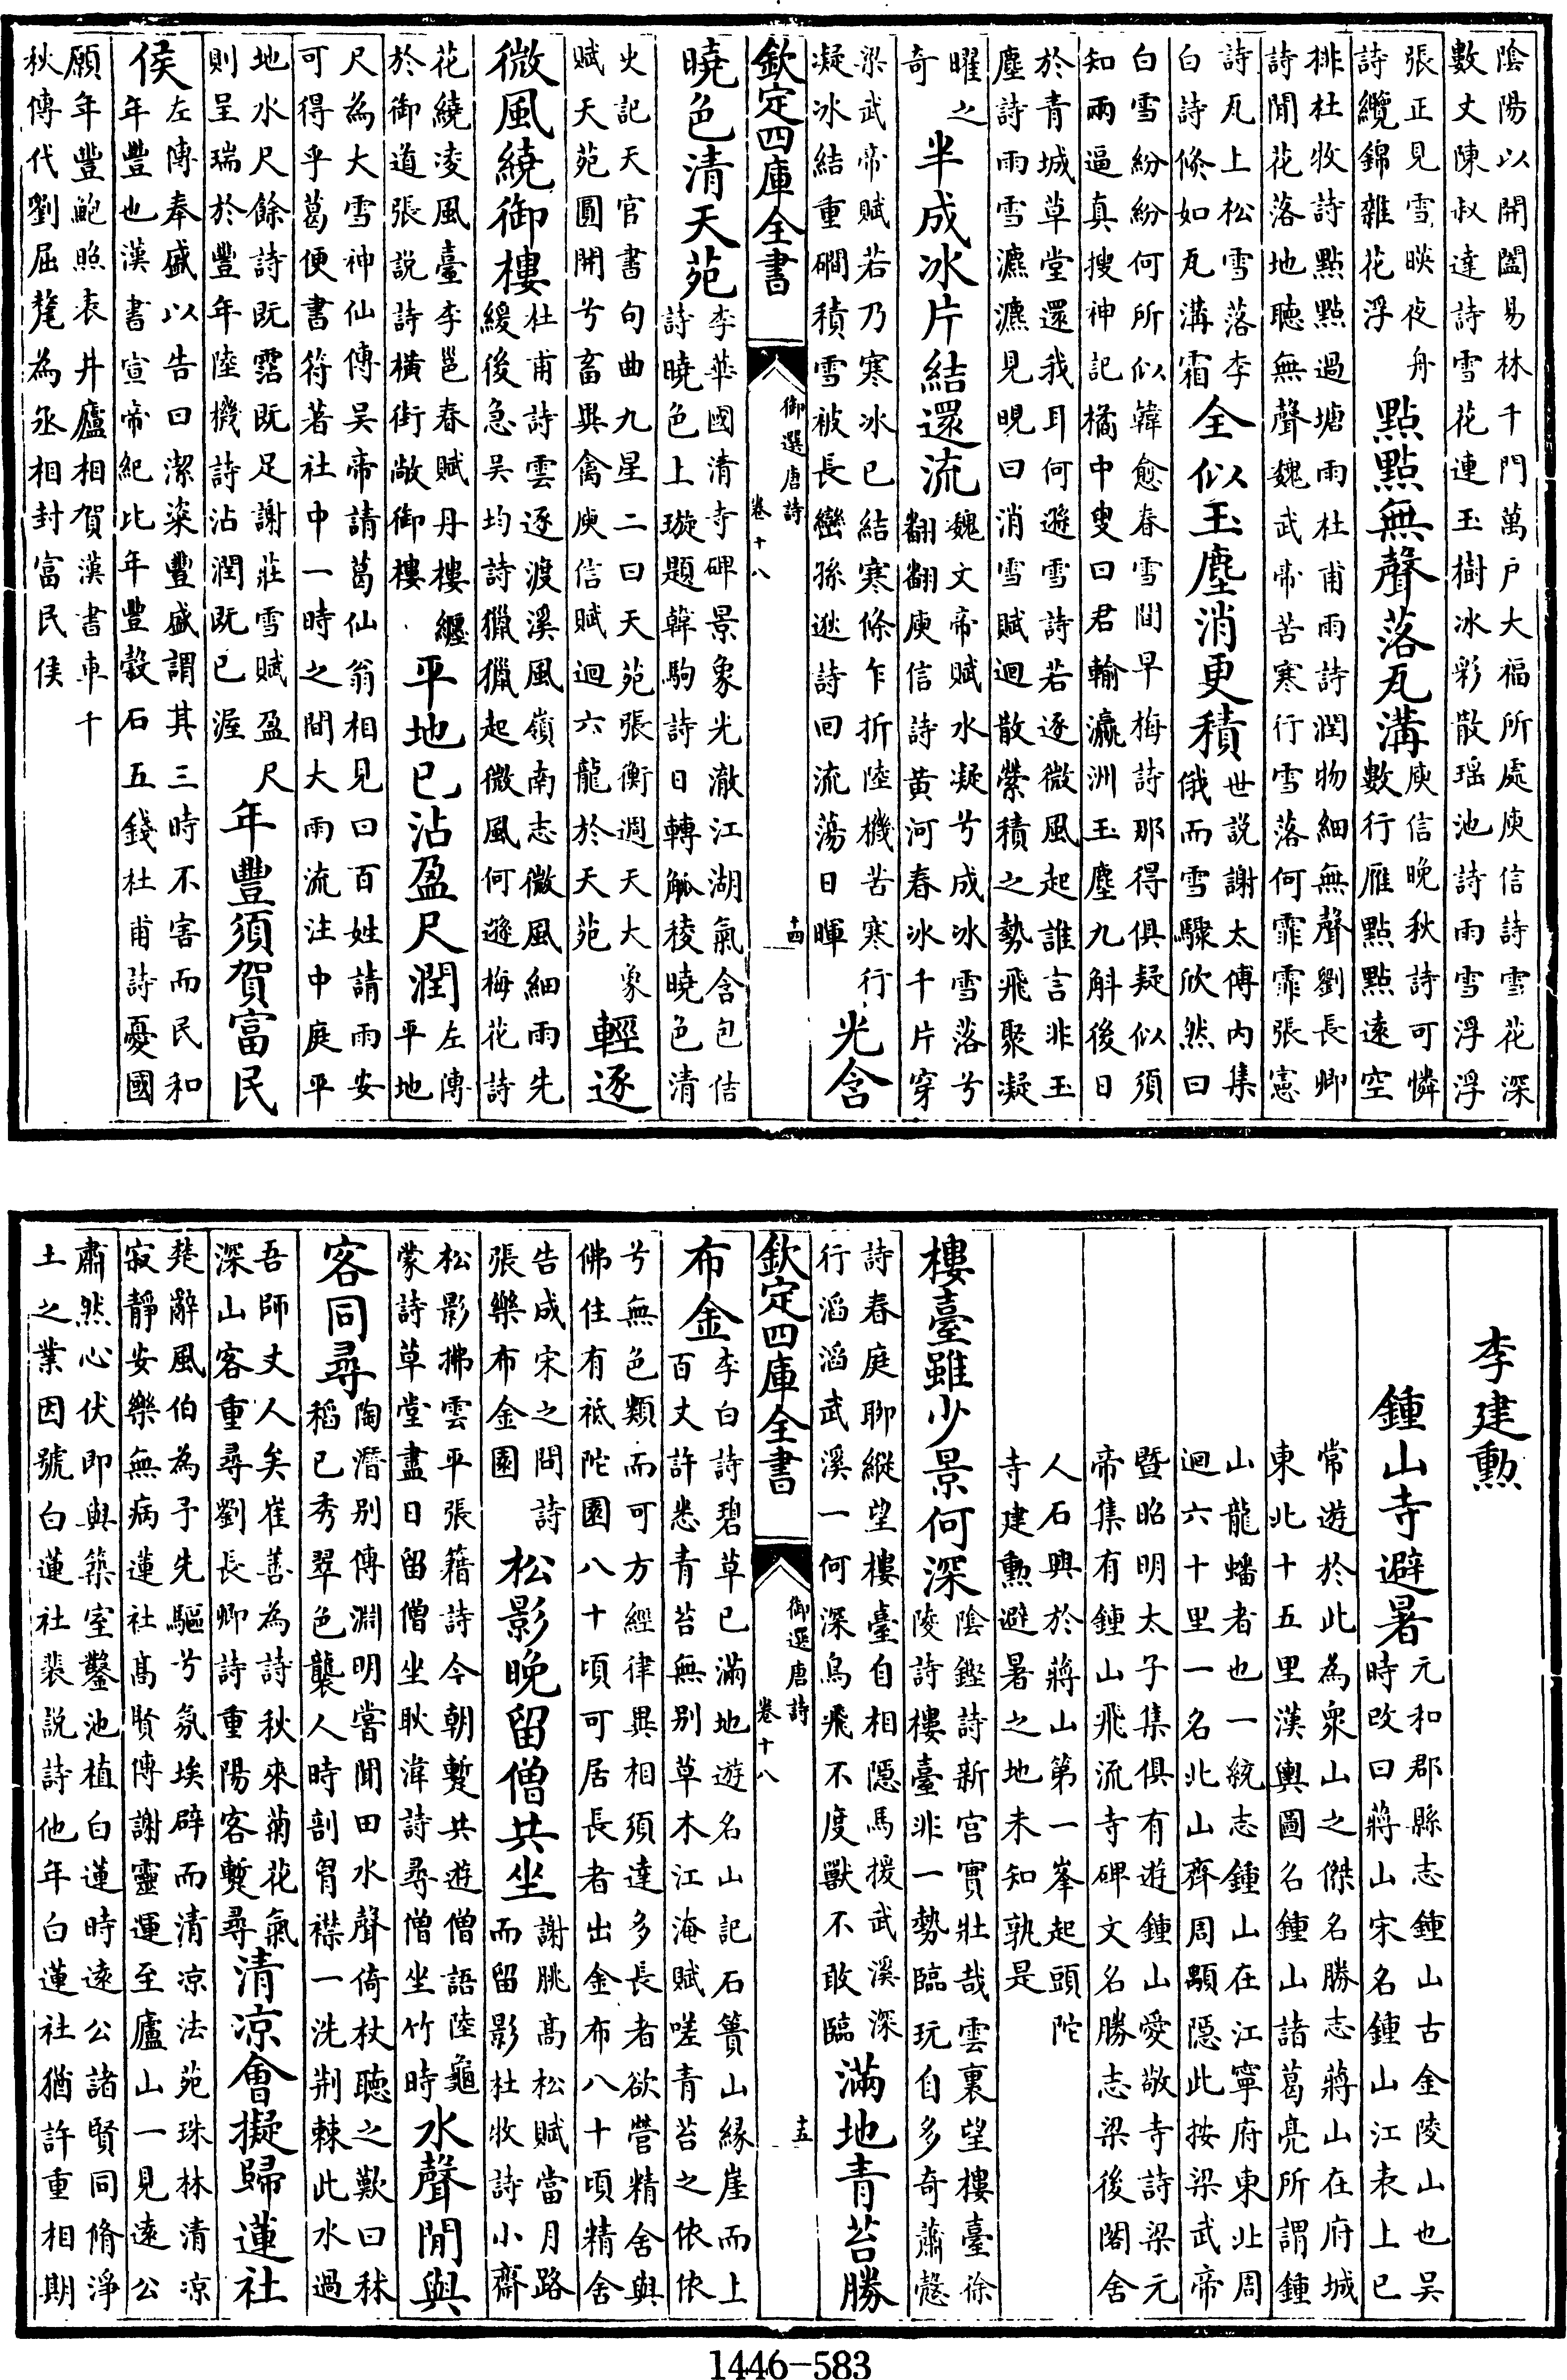 陰陽以開闔易林千門萬戶大福所處庾信詩雪花深
數丈陳叔達詩雪花連玉樹冰彩散瑤池詩雨雪浮浮
張正見雪映夜舟
詩纜錦雜花浮
點點無聲落瓦溝
庾信晚秋詩可憐
數行雁點點遠空
排杜牧詩點點過塘雨杜甫雨詩潤物細無聲劉長卿
詩閒花落地聽無聲魏武帝苦寒行雪落何霏霏張憲
詩瓦上松雪落李
白詩條如瓦溝霜
全似玉塵消更積
世說謝太傅内集
俄而雪驟欣然曰
白雪紛紛何所似韓愈春雪間早梅詩那得俱疑似須
知兩逼真搜神記橘中叟曰君輸瀛洲玉塵九斛後日
於青城草堂還我耳何遜雪詩若逐微風起誰言非玉
塵詩雨雪瀌瀌見晛曰消雪賦迴散縈積之勢飛聚凝
曜之
奇
半成冰片結還流
魏文帝賦水凝兮成冰雪落兮
翻翻庾信詩黃河春冰千片穿
梁武帝賦若乃寒冰已結寒條乍折陸機苦寒行
凝冰結重磵積雪被長巒孫逖詩回流蕩日暉
光含
欽定四庫全書
御選唐詩
卷十八
十四
曉色清天苑
李華國清寺碑景象光澈江湖氣含包佶
詩曉色上璇題韓駒詩日轉觚稜曉色清
史記天官書句曲九星二曰天苑張衡週天大象
賦天苑圓開兮畜興禽庾信賦迴六龍於天苑
輕逐
微風繞御樓
杜甫詩雲逐渡溪風嶺南志微風細雨先
緩後急吳均詩獵獵起微風何遜梅花詩
花繞凌風臺李邕春賦丹樓纒
於御道張說詩橫街敞御樓
平地已沾盈尺潤
左傳
平地
尺為大雪神仙傳吳帝請葛仙翁相見曰百姓請雨安
可得乎葛便書符著社中一時之間大雨流注中庭平
地水尺餘詩既霑既足謝莊雪賦盈尺
則呈瑞於豐年陸機詩沾潤既已渥
年豐須賀富民
侯
左傳奉盛以告曰潔粢豐盛謂其三時不害而民和
年豐也漢書宣帝紀比年豐穀石五錢杜甫詩憂國
願年豐鮑照表井廬相賀漢書車千
秋傳代劉屈氂為丞相封富民侯
李建勳
鍾山寺避暑
元和郡縣志鍾山古金陵山也吳
時改曰蔣山宋名鍾山江表上巳
常遊於此為衆山之傑名勝志蔣山在府城
東北十五里漢輿圖名鍾山諸葛亮所謂鍾
山龍蟠者也一統志鍾山在江寧府東北周
迴六十里一名北山齊周顒隠此按梁武帝
暨昭明太子集俱有遊鍾山愛敬寺詩梁元
帝集有鍾山飛流寺碑文名勝志梁後閣舍
人石興於蔣山第一峯起頭陀
寺建勳避暑之地未知孰是
樓臺雖少景何深
陰鏗詩新宮實壯哉雲裏望樓臺徐
陵詩樓臺非一勢臨玩自多奇蕭慤
詩春庭聊縱望樓臺自相隠馬援武溪深
行滔滔武溪一何深鳥飛不度獸不敢臨
滿地青苔勝
欽定四庫全書
御選唐詩
卷十八
十五
布金
李白詩碧草已滿地遊名山記石簣山緣崖而上
百丈許悉青苔無别草木江淹賦嗟青苔之依依
兮無色類而可方經律異相須達多長者欲營精舍與
佛住有祇陀園八十頃可居長者出金布八十頃精舍
告成宋之問詩
張樂布金園
松影晚留僧共坐
謝朓高松賦當月路
而留影杜牧詩小齋
松影拂雲平張籍詩今朝暫共遊僧語陸龜
蒙詩草堂盡日留僧坐耿湋詩尋僧坐竹時
水聲閒與
客同尋
陶潛别傳淵明嘗聞田水聲倚杖聽之歎曰秫
稻已秀翠色襲人時剖胷襟一洗荆棘此水過
吾師丈人矣崔善為詩秋來菊花氣
深山客重尋劉長卿詩重陽客暫尋
清凉會擬歸蓮社
楚辭風伯為予先驅兮氛埃辟而清凉法苑珠林清凉
寂靜安樂無病蓮社髙賢傳謝靈運至廬山一見遠公
肅然心伏即與築室鑿池植白蓮時遠公諸賢同脩淨
土之業因號白蓮社裴說詩他年白蓮社猶許重相期
1446-583